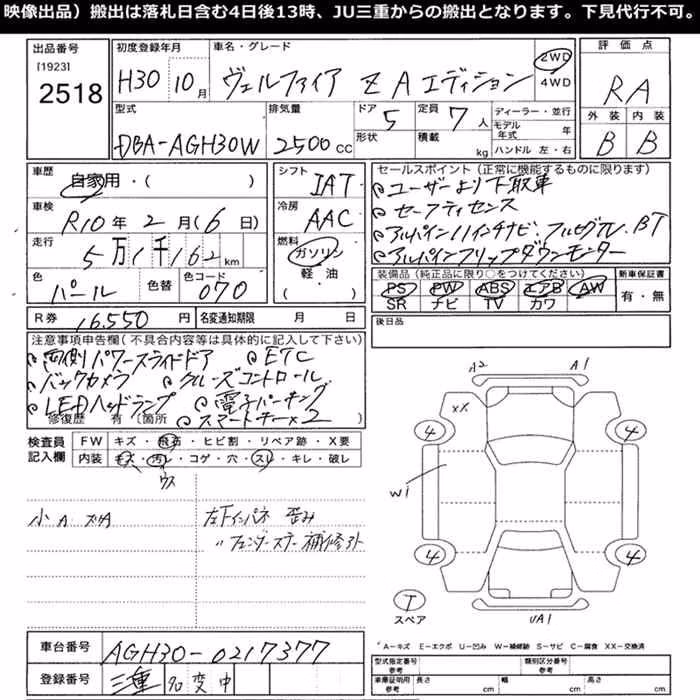 映像出品）搬出は落札日含む4日後13時、JU三重からの搬出となります。下見代行不可。
出品番号 初度登録年月 車名・グレード 評価点
[1923] 2518 H30 10月 ヴェルファイア Z Aエディション 2WD 4WD RA
型式 排気量 ドア 5 定員 7 人 ディーラー・並行 外装 内装
DBA-AGH30W 2500 CC 形状 積載 kg モデル年式 年 ハンドル 左・右 B B
車歴 自家用・( ) シフト IAT セールスポイント (正常に機能するものに限ります)
ユーザーより下取車
車検 R10年 2月 (6日) 冷房 AAC セーフティセンス
アルパイン11インチナビ・フルセグTV、BT
走行 5万1千162 km 燃料 ガソリン 軽・油 アルパインフリップダウンモニター
色 パール 色替 色コード 070 装備品 (純正品に限り○をつけてください) 新車保証書
PS PW ABS エアB AW 有・無
SR ナビ TV カワ
R券 16,550 円 名変通知期限 月 日 後日品
注意事項申告欄(不具合内容等は具体的に記入して下さい)
両側パワースライドドア ETC
バックカメラ クルーズコントロール
LEDヘッドランプ 電子パーキング
修復歴 有 〔箇所 スマートキー×2
検査員記入欄 FW キズ・飛石・ヒビ割・リペア跡・X要
内装 キズ・汚レ・コゲ・穴・スレ・キレ・破レ
ウス
小A
左下インパネ 歪み
〃フェンダーステー補修引ト
A2 A1
XX
4 4
W1
4 4
T
スペア UA1
A－キズ E－エクボ U－凹み W－補修跡 S－サビ C－腐食 XX－交換済
車台番号 AGH30-0217377 型式指定番号 参考 類別区分番号 参考
登録番号 三重 名変中 車庫証明用 参考 長さ cm 幅 cm 高さ cm